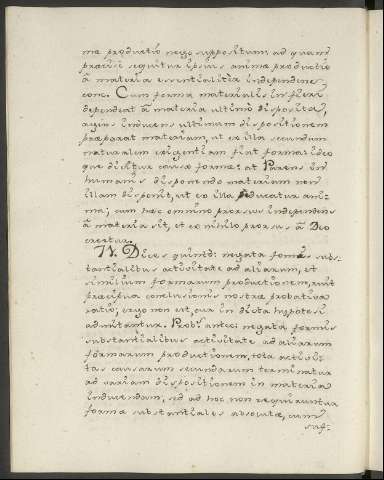 ma productio nego suppositum ad quam
præcisè sequitur ipsius animæ productio
à materia essentialiter independens
conc. Cum forma materialis in fieri
dependeat à materia ultimò disposita,
agens inducens ultimam dispositionem
præparat materiam, ut ex illa secundum
naturalem exigentiam fiat forma: ideo
que dicitur causa formæ: at Parens in
humanis disponendo materiam non
illam disponit, ut ex illa educatur ani-
ma; cum hæc omnino prorsus independens
à materia sit, et ex nihilo prorsus à Deo
creetur.
Dices quintò: negata formis subs-
tantialibus activitate ad aliarum, et
similium formarum productionem, ruit
præcipua conclusionis nostræ probativa
ratio; ergo non est, cur in dicta hypotesi
admittantur. Probr. antec: negata formis
substantialibus activitate ad aliarum
formarum productionem, tota activi-
tas causarum secundarum terminatur
ad variam dispositionem in materia
inducendam, sed ad hoc non requiruntur
formæ substantiales absolutæ, cum
suf-